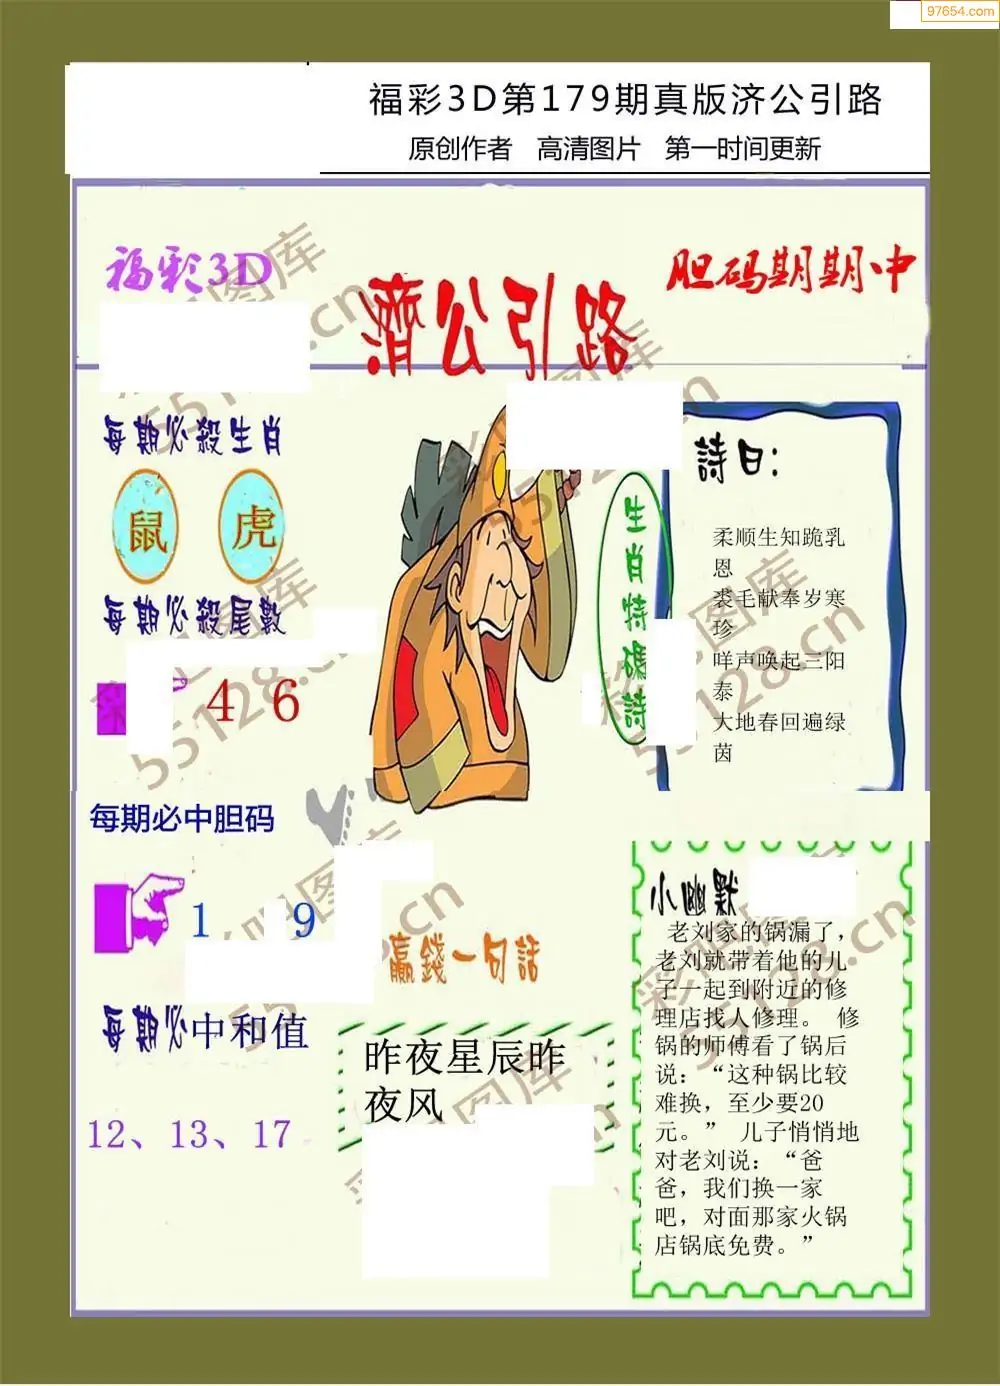 97654.com
福彩3D第179期真版济公引路
原创作者 高清图片 第一时间更新
福彩3D
濟公引路
胆码期期中
每期必殺生肖
鼠 虎
每期必殺尾數
4 6
每期必中胆码
1 9
每期必中和值
12、13、17
生肖特碼詩
詩曰:
柔顺生知跪乳
恩
裘毛献奉岁寒
珍
咩声唤起三阳
泰
大地春回遍绿
茵
赢錢一句話
昨夜星辰昨
夜风
小幽默
老刘家的锅漏了，
老刘就带着他的儿
子一起到附近的修
理店找人修理。 修
锅的师傅看了锅后
说：“这种锅比较
难换，至少要20
元。” 儿子悄悄地
对老刘说：“爸
爸，我们换一家
吧，对面那家火锅
店锅底免费。”
彩吧图库
55128.cn